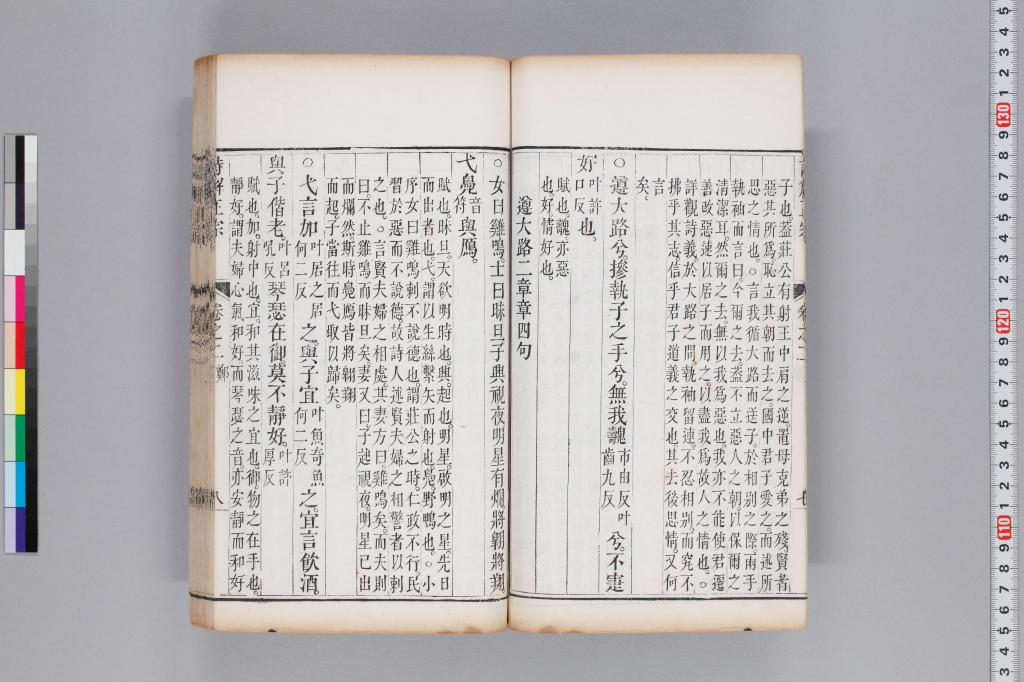 子也蓋莊公有射王中肩之逆置母克弟之殘賢者
惡其所爲恥立其朝而去之國中君子愛之而述所
思之情也○言我循大路而送子於相别之際兩手
執袖而言曰今爾之去蓋不立惡人之朝以保爾之
清潔耳然爾之去無以我爲惡也我亦不能使君遷
善改惡速以居子而用之以盡我爲故人之情也○
詳觀詩義於大路之間執袖留連不忍相别而究不
拂乎其志信乎君子道義之交也其去後思情又何
言
矣
○遵大路兮摻執子之手兮無我魗市由反叶齒九反兮不寁
好叶許口反也
賦也魗亦惡
也好情好也
遵大路二章章四句
○女曰雞鳴士曰昧旦子興視夜明星有爛將翱將翔
弋鳧音符與鴈
賦也昧旦天欲明時也興起也明星啟明之星先日
而出者也弋謂以生絲繫矢而射也鳧野鴨也○小
序女曰雞鳴刺不說德也謂莊公之時仁政不行民
習於惡而不說德故詩人述賢夫婦之相警者以刺
之也○言賢夫婦之相處其妻方曰雞鳴矣而夫則
曰不止雞鳴而昧旦矣妻又曰子起視夜明星已出
而爛然斯時鳧鴈皆將翱翔
而起子當往而弋取以歸矣
○弋言加叶居之居何二反之與子宜叶魚奇魚何二反之宜言飲酒
與子偕老叶呂吼反琴瑟在御莫不靜好叶許厚反
賦也加射中也宜和其滋味之宜也御物之在手也
靜好謂夫婦心氣和好而琴瑟之音亦安靜而和好
詩解正宗
卷之二 鄭
八